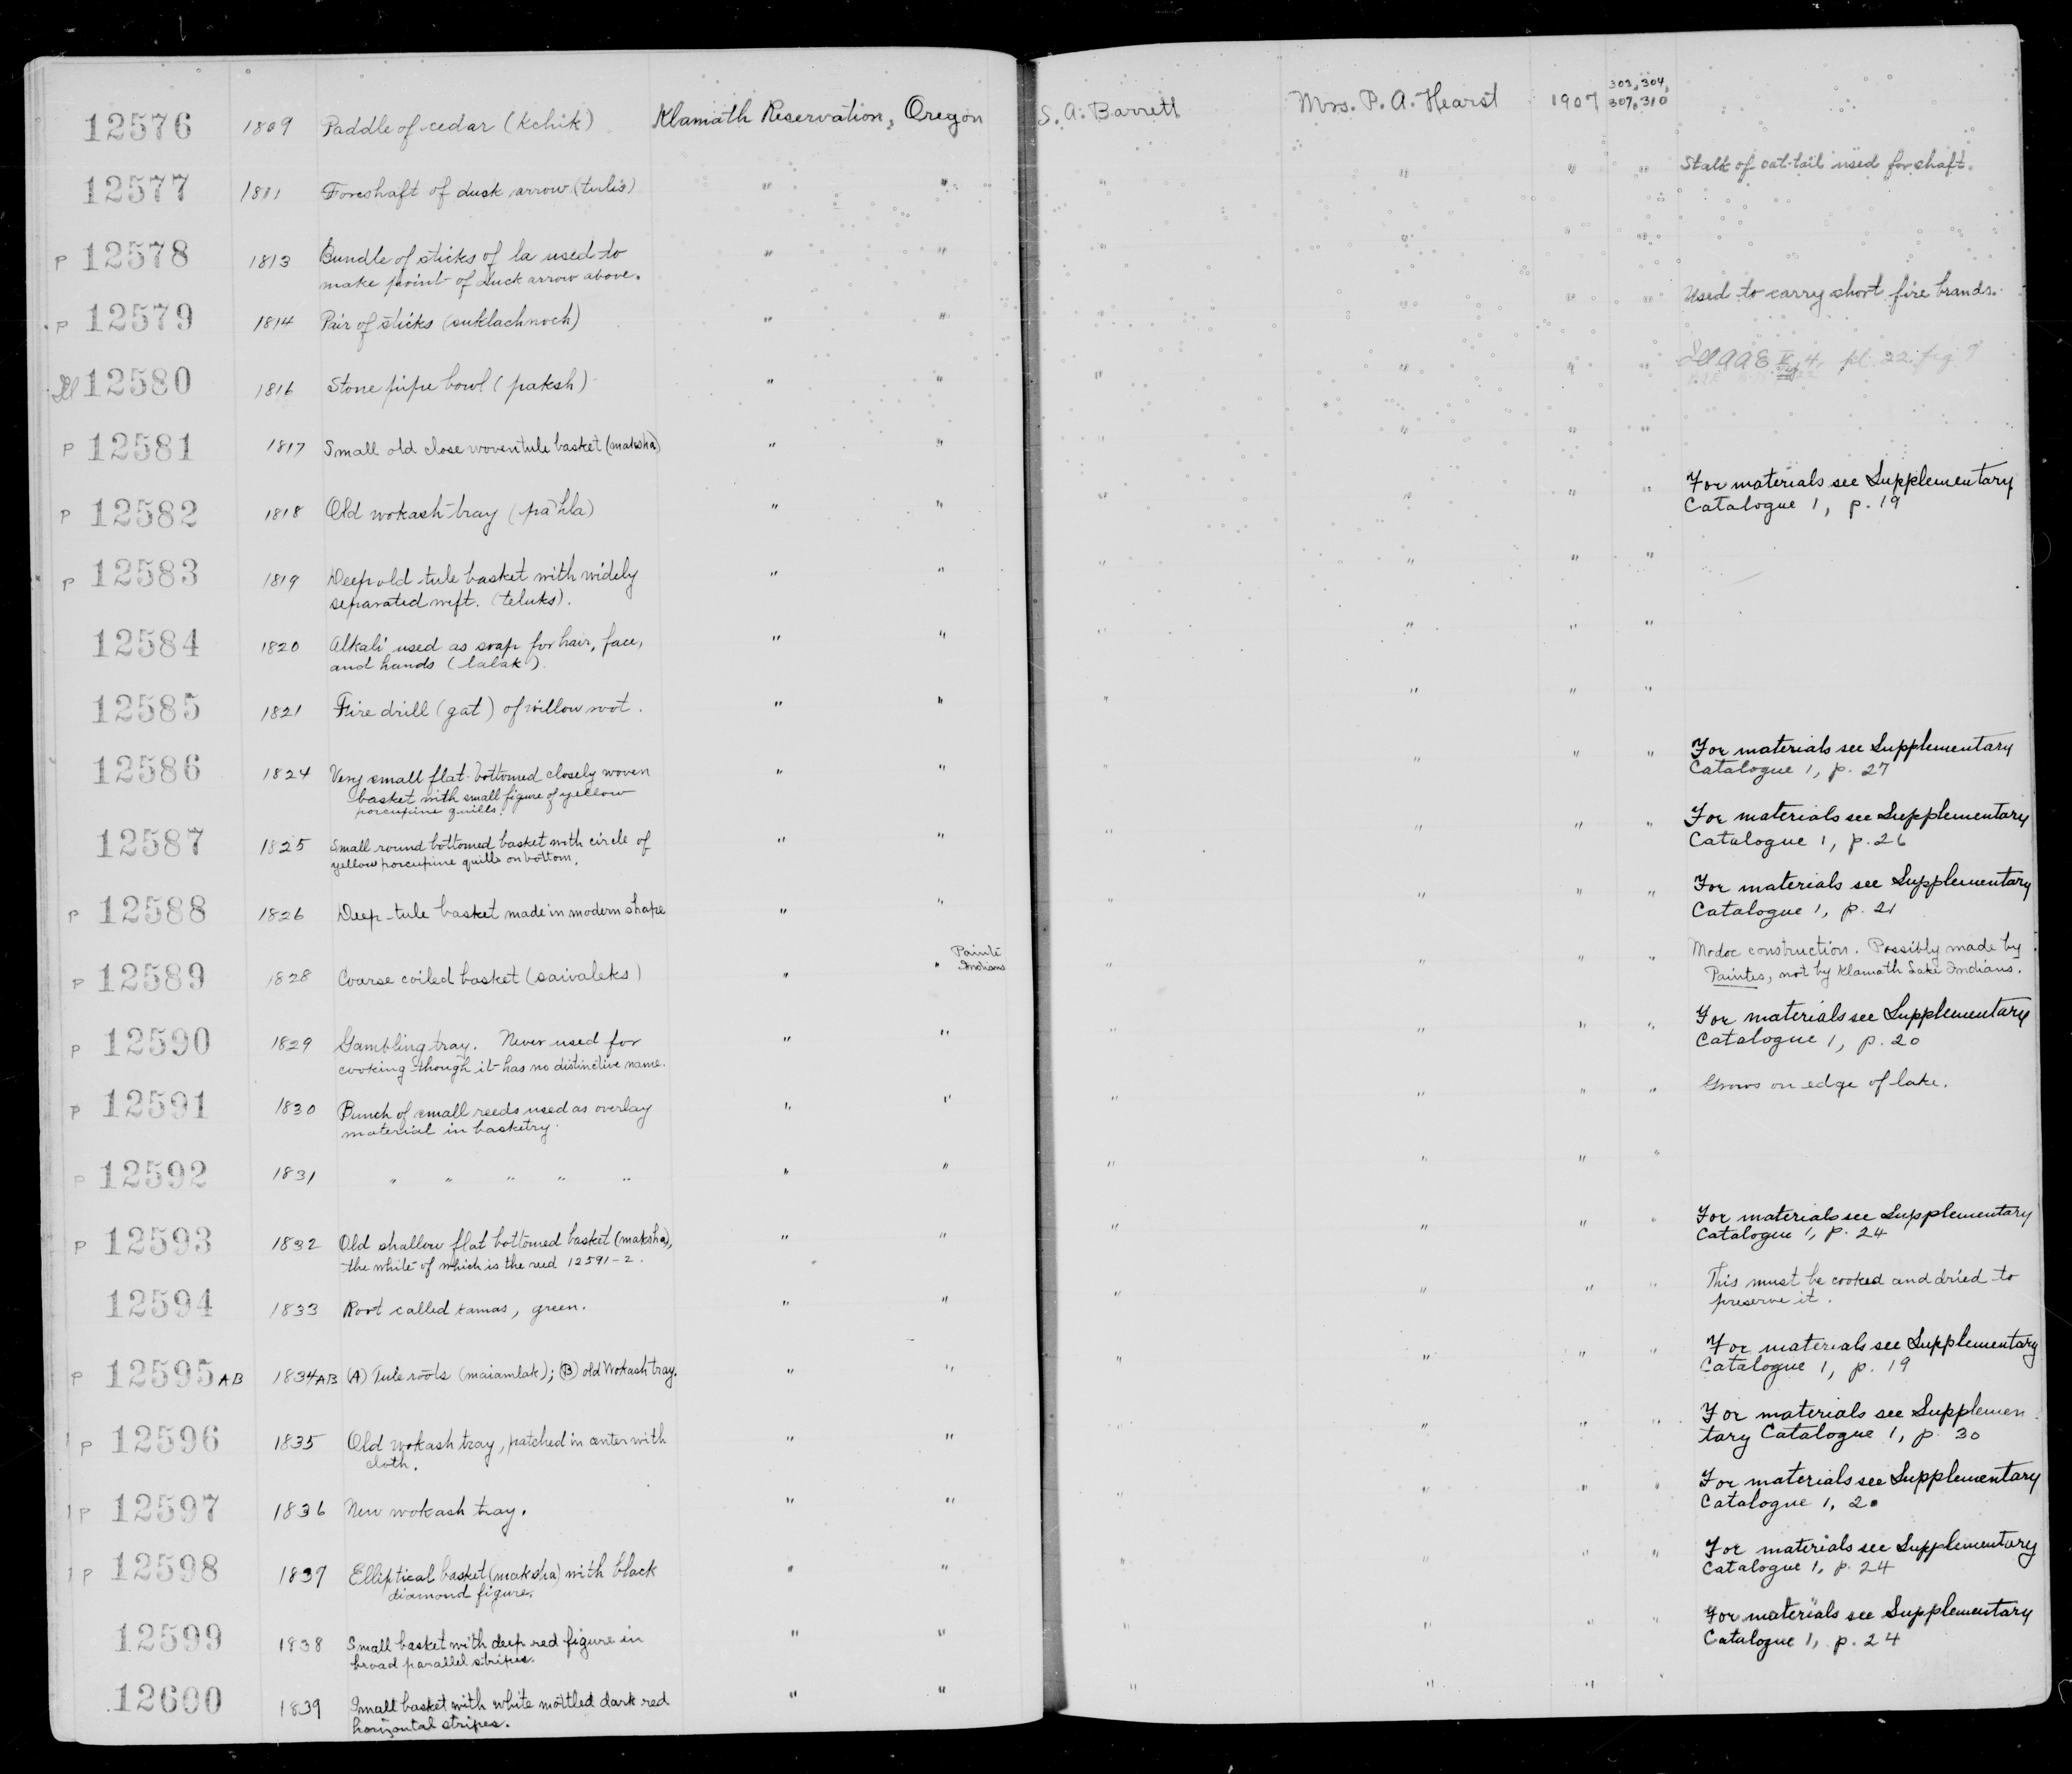 12576 1809 Paddle of cedar (Kchik) Klamath Reservation, Oregon S. A. Barrett Mrs. P. A. Hearst 1907 303, 304, 307, 310
12577 1811 Foreshaft of duck arrow (tulis) " " " " " " Stalk of cat-tail used for shaft.
P 12578 1813 Bundle of sticks of la used to
make point of duck arrow above. " " " " " "
P 12579 1814 Pair of sticks (suklachnoch) " " " " " " Used to carry short fire brands.
Ill 12580 1816 Stone pipe bowl (paksh) " " " " " " pl. 22. fig. 9
P 12581 1817 Small old close woven tule basket (maksha) " " " " " "
P 12582 1818 Old wokash tray (pa'hla) " " " " " " For materials see Supplementary
Catalogue 1, p. 19
P 12583 1819 Deep old tule basket with widely
separated weft. (teluks). " " " " " "
12584 1820 Alkali used as soap for hair, face,
and hands (lalak). " " " " " "
12585 1821 Fire drill (gat) of willow root. " " " " " "
12586 1824 Very small flat-bottomed closely woven
basket with small figure of yellow
porcupine quills. " " " " " " For materials see Supplementary
Catalogue 1, p. 27
12587 1825 Small round bottomed basket with circle of
yellow porcupine quills on bottom. " " " " " " For materials see Supplementary
Catalogue 1, p. 26
P 12588 1826 Deep tule basket made in modern shape " " " " " " For materials see Supplementary
Catalogue 1, p. 21
P 12589 1828 Coarse coiled basket (saivaleks) " " Painte
Indians " " " " Modoc construction. Possibly made by
Paintes, not by Klamath Lake Indians.
P 12590 1829 Gambling tray. Never used for
cooking though it has no distinctive name. " " " " " " For materials see Supplementary
Catalogue 1, p. 20
P 12591 1830 Bunch of small reeds used as overlay
material in basketry. " " " " " " Grows on edge of lake.
P 12592 1831 " " " " " " " " " " "
P 12593 1832 Old shallow flat bottomed basket (maksha),
the white of which is the reed 12591-2. " " " " " " For materials see Supplementary
Catalogue 1, p. 24
12594 1833 Root called kamas, green. " " " " " " This must be cooked and dried to
preserve it.
P 12595 AB 1834 AB (A) Tule roots (maiamlak); (B) old Wokash tray. " " " " " " For materials see Supplementary
Catalogue 1, p. 19
1 P 12596 1835 Old wokash tray, patched in center with
cloth. " " " " " " For materials see Supplemen
tary Catalogue 1, p. 30
1 P 12597 1836 New wokash tray. " " " " " " For materials see Supplementary
Catalogue 1, 20
1 P 12598 1837 Elliptical basket (maksha) with black
diamond figure. " " " " " " For materials see Supplementary
Catalogue 1, p. 24
12599 1838 Small basket with deep red figure in
broad parallel stripes. " " " " " " For materials see Supplementary
Catalogue 1, p. 24
12600 1839 Small basket with white mottled dark red
horizontal stripes. " " " " " "